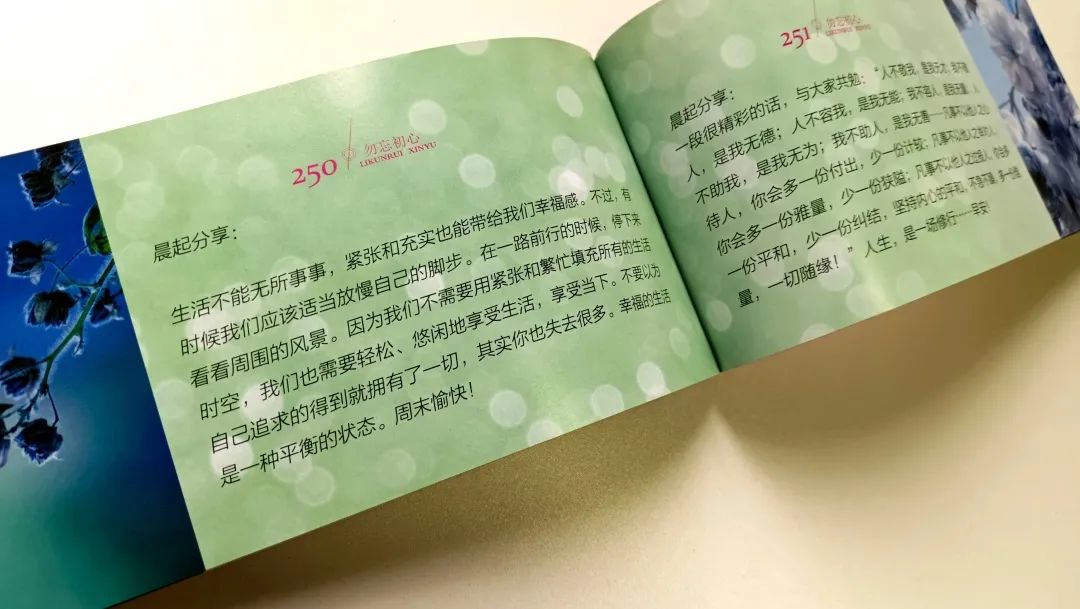 250 勿忘初心
LIKUNRUI XINYU
晨起分享：
生活不能无所事事，紧张和充实也能带给我们幸福感。不过，有
时候我们应该适当放慢自己的脚步。在一路前行的时候，停下来
看看周围的风景。因为我们不需要用紧张和繁忙填充所有的生活
时空，我们也需要轻松、悠闲地享受生活，享受当下。不要以为
自己追求的得到就拥有了一切，其实你也失去很多。幸福的生活
是一种平衡的状态。周末愉快！
251 勿忘初心
LIKUNRUI XINYU
晨起分享：
一段很精彩的话，与大家共勉：“人不敬我，是我无才；我不敬
人，是我无德；人不容我，是我无能；我不容人，是我无量；人
不助我，是我无为；我不助人，是我无善——凡事不以他人之心
待人，你会多一份付出，少一份计较；凡事不以他人之
你会多一份雅量，少一份狭隘；凡事不以他人之过 人，你会多
一份平和，少一份纠结，坚持内心的平和，不急不躁，多一
量，一切随缘！”人生，是一场修行……早安！